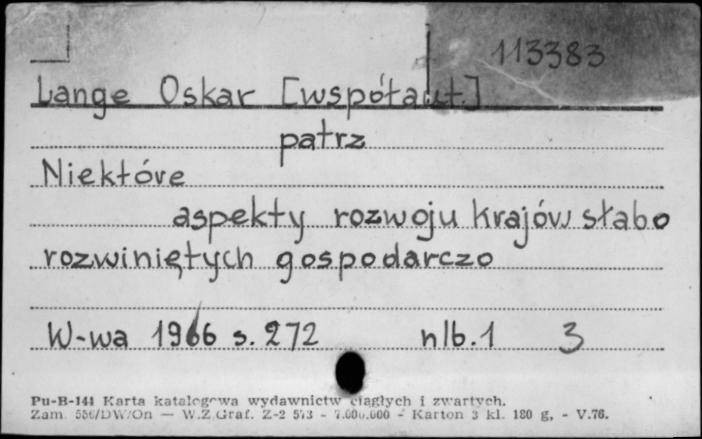 113383
Lange Oskar [współaut.]
patrz
Niektóre
aspekty rozwoju krajów słabo
rozwiniętych gospodarczo
W-wa 1966 s. 272 nlb. 1 3
Pu-B-141 Karta katalogowa wydawnictw ciągłych i zwartych.
Zam. 556/DW/On — W.Z.Graf. Z-2 573 - 7.000.000 - Karton 3 kl. 180 g, - V.76.